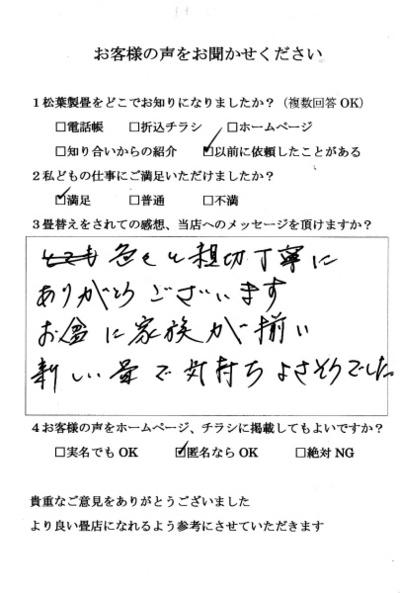 お客様の声をお聞かせください
1松葉製畳をどこでお知りになりましたか？（複数回答OK）
□電話帳 □折込チラシ □ホームページ
□知り合いからの紹介 ☑以前に依頼したことがある
2私どもの仕事にご満足いただけましたか？
☑満足 □普通 □不満
3畳替えをされての感想、当店へのメッセージを頂けますか？
とても 色々と親切丁寧に
ありがとうございます
お盆に家族が揃い
新しい畳で気持ちよさそうでした
4お客様の声をホームページ、チラシに掲載してもよいですか？
□実名でもOK ☑匿名ならOK □絶対NG
貴重なご意見をありがとうございました
より良い畳店になれるよう参考にさせていただきます